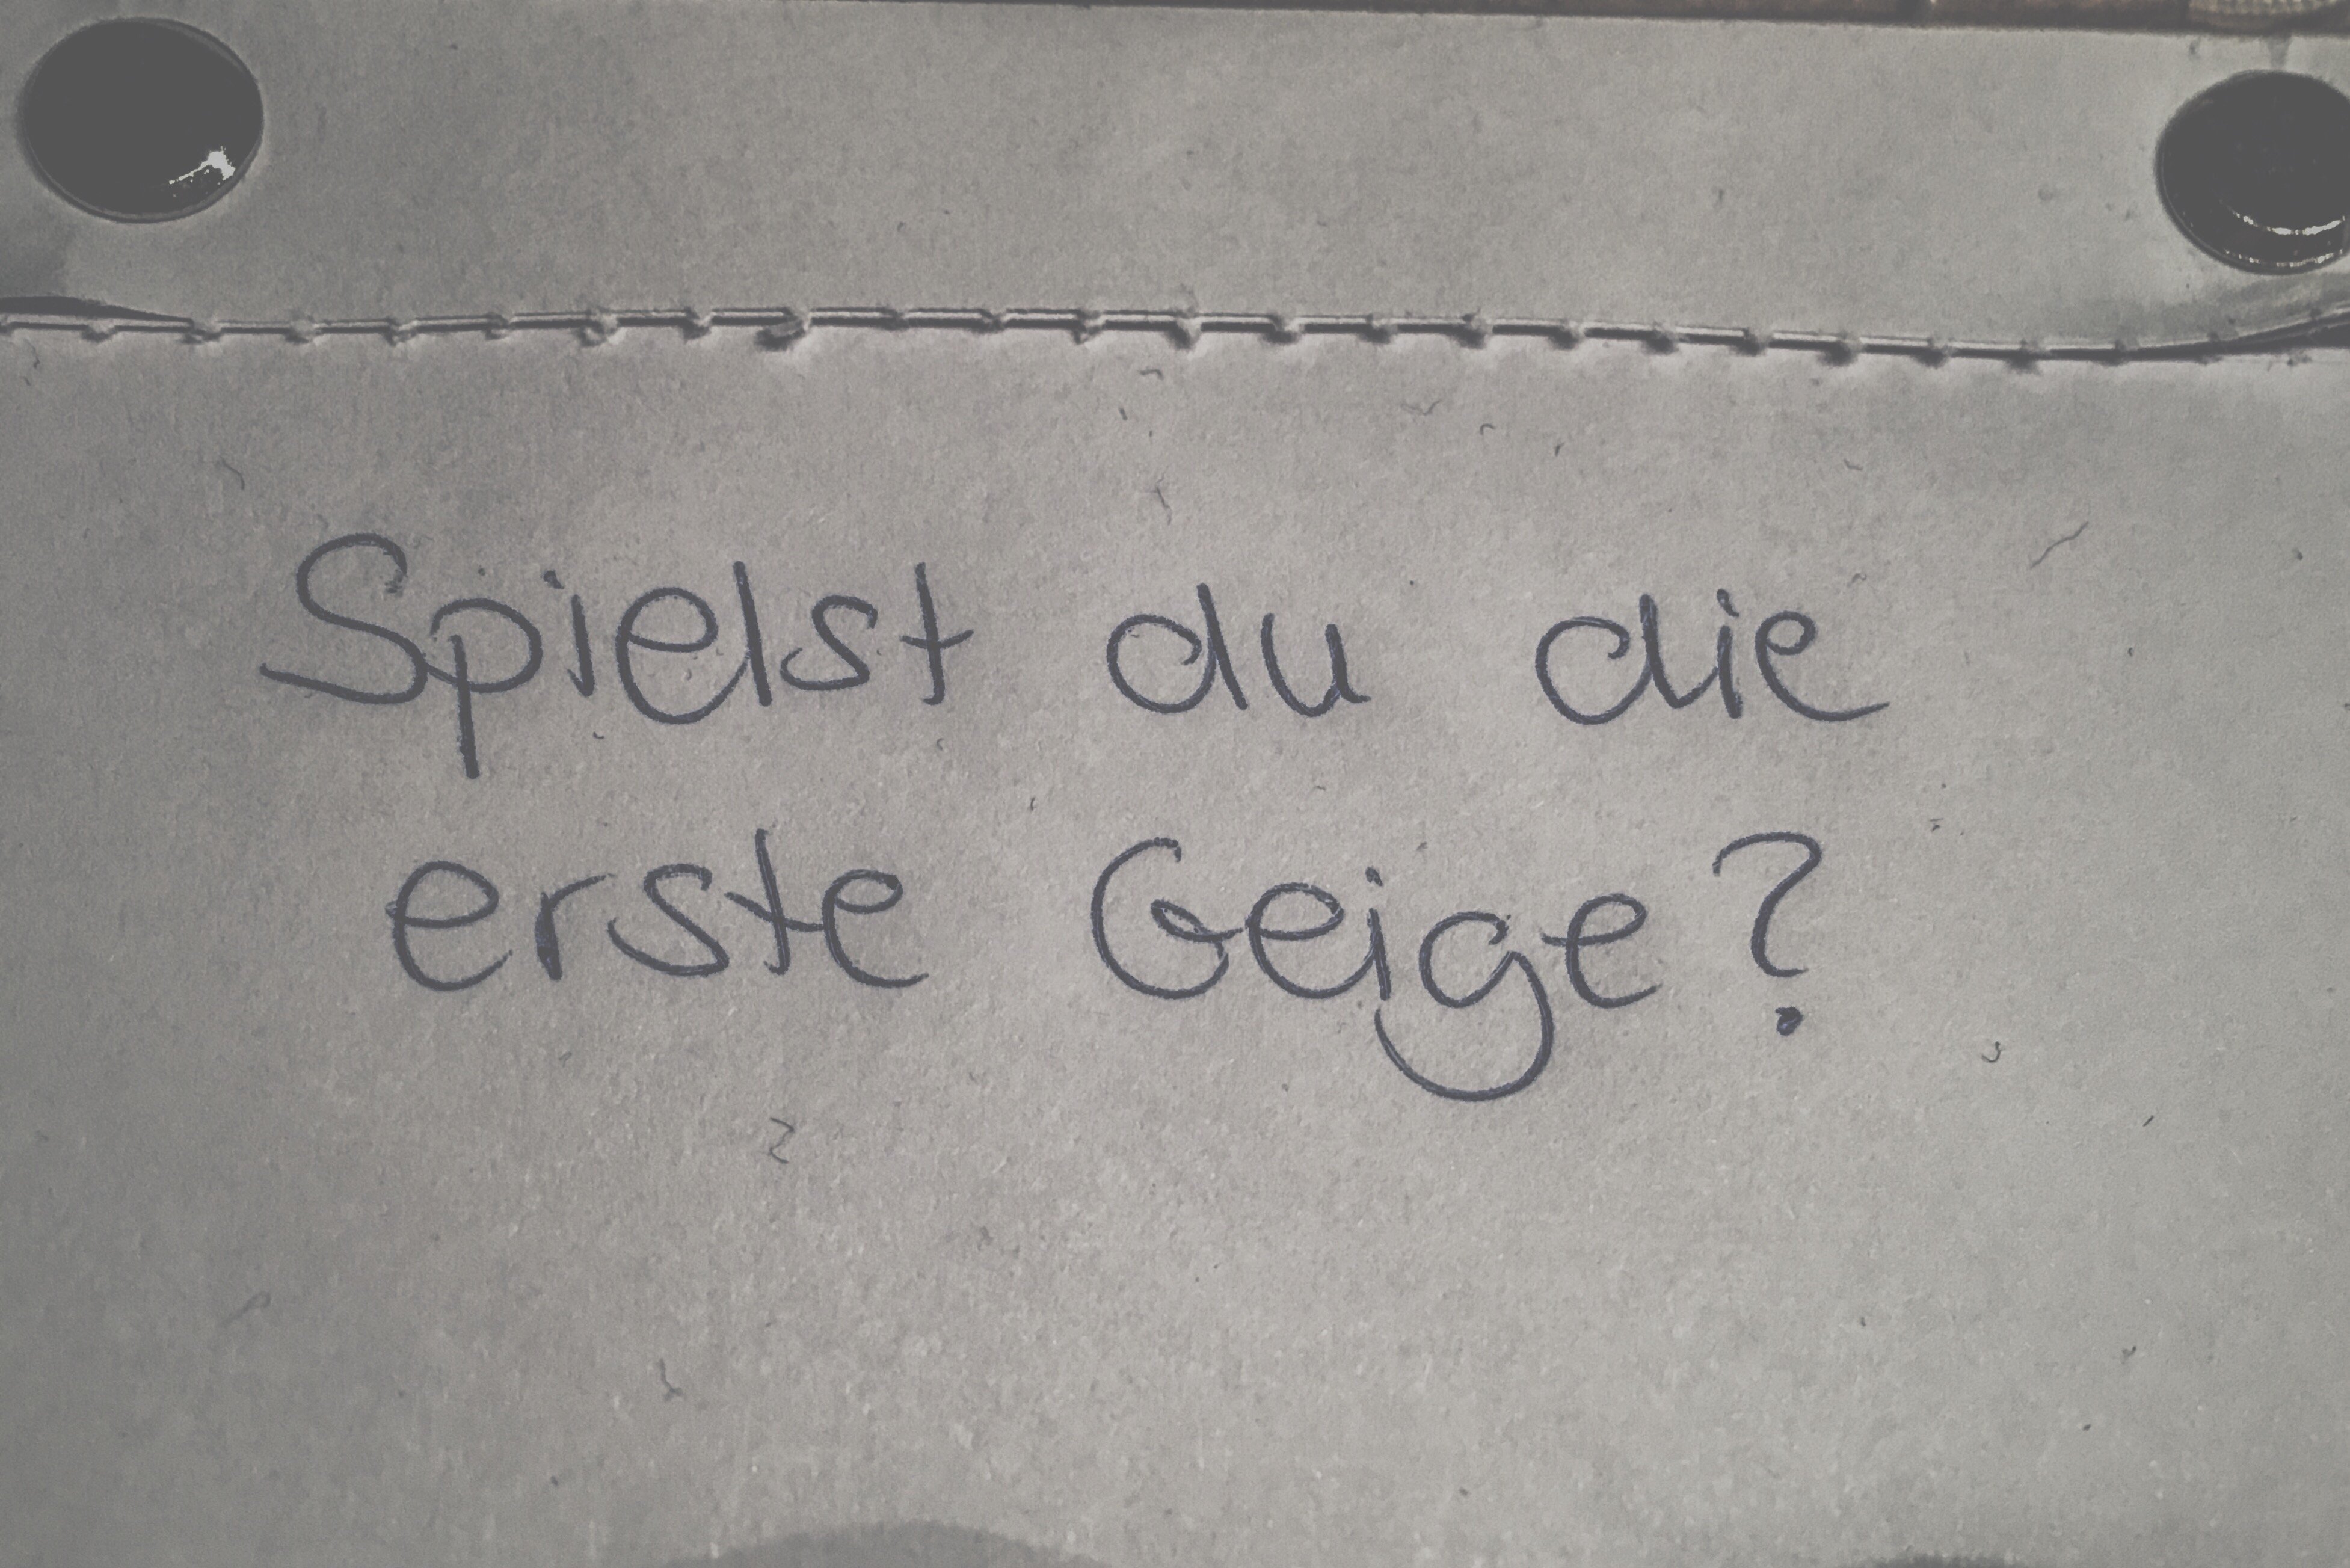 Spielst du die
erste Geige?